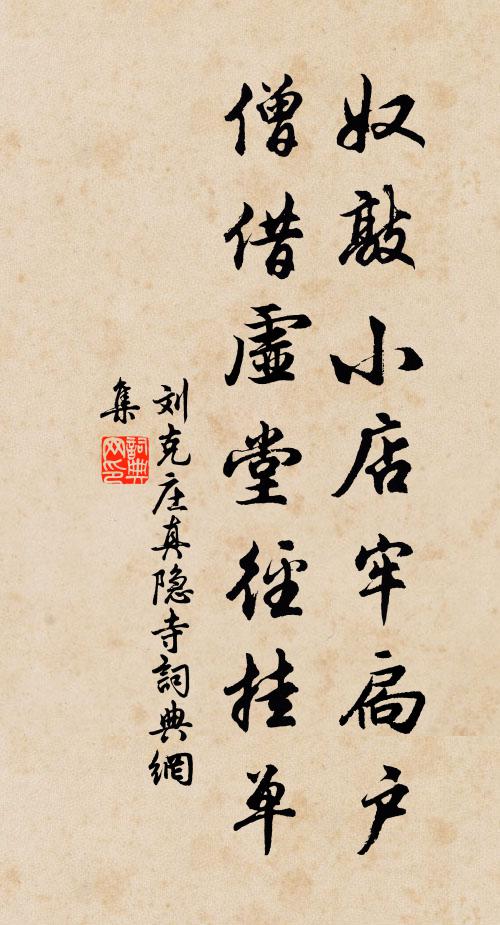 奴敲小店牢扃户
僧借虚堂径挂单
刘克庄真隐寺詞典網
集
詞典
网印